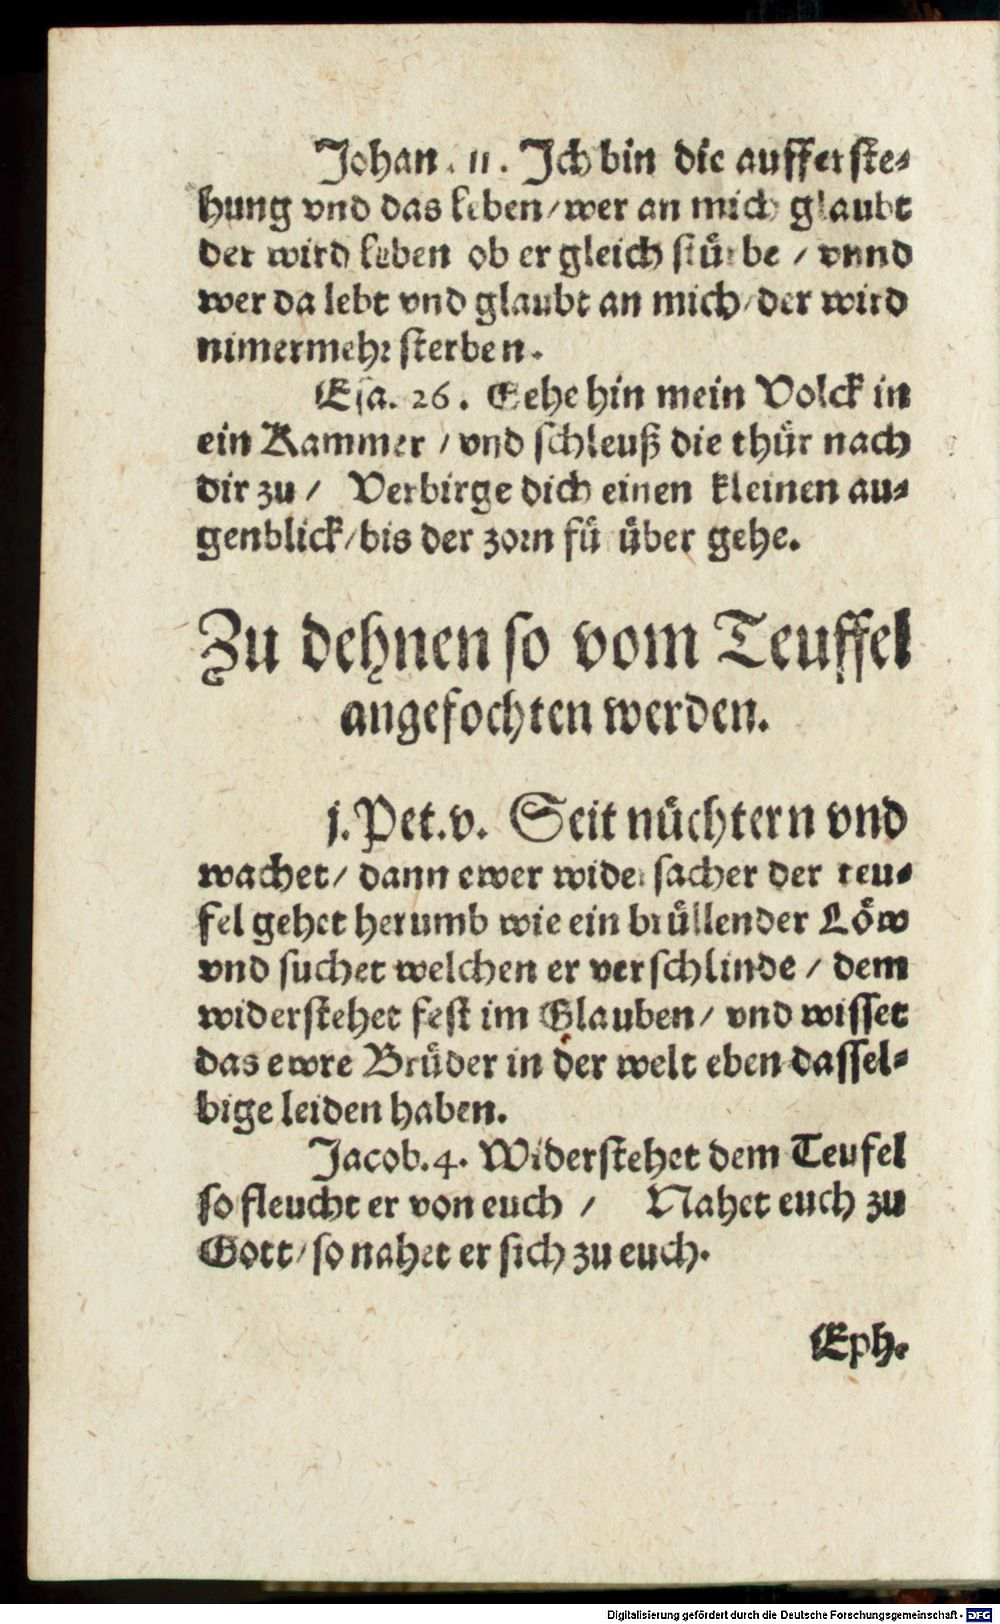 Johan. 11. Ich bin die aufferste⸗
hung vnd das leben/wer an mich glaubt
der wird leben ob er gleich stürbe / vnnd
wer da lebt vnd glaubt an mich/der wird
nimermehr sterben.
Esa. 26. Gehe hin mein Volck in
ein Kammer / vnd schleuß die thür nach
dir zu / Verbirge dich einen kleinen au⸗
genblick/bis der zorn fü über gehe.
Zu dehnen so vom Teuffel
angefochten werden.
j. Pet. v. Seit nüchtern vnd
wachet/ dann ewer widersacher der teu⸗
fel gehet herumb wie ein brüllender Löw
vnd suchet welchen er verschlinde / dem
widerstehet fest im Glauben/ vnd wisset
das ewre Brüder in der welt eben dassel⸗
bige leiden haben.
Jacob. 4. Widerstehet dem Teufel
so fleucht er von euch / Nahet euch zu
Gott/so nahet er sich zu euch.
Eph.
Digitalisierung gefördert durch die Deutsche Forschungsgemeinschaft - DFG